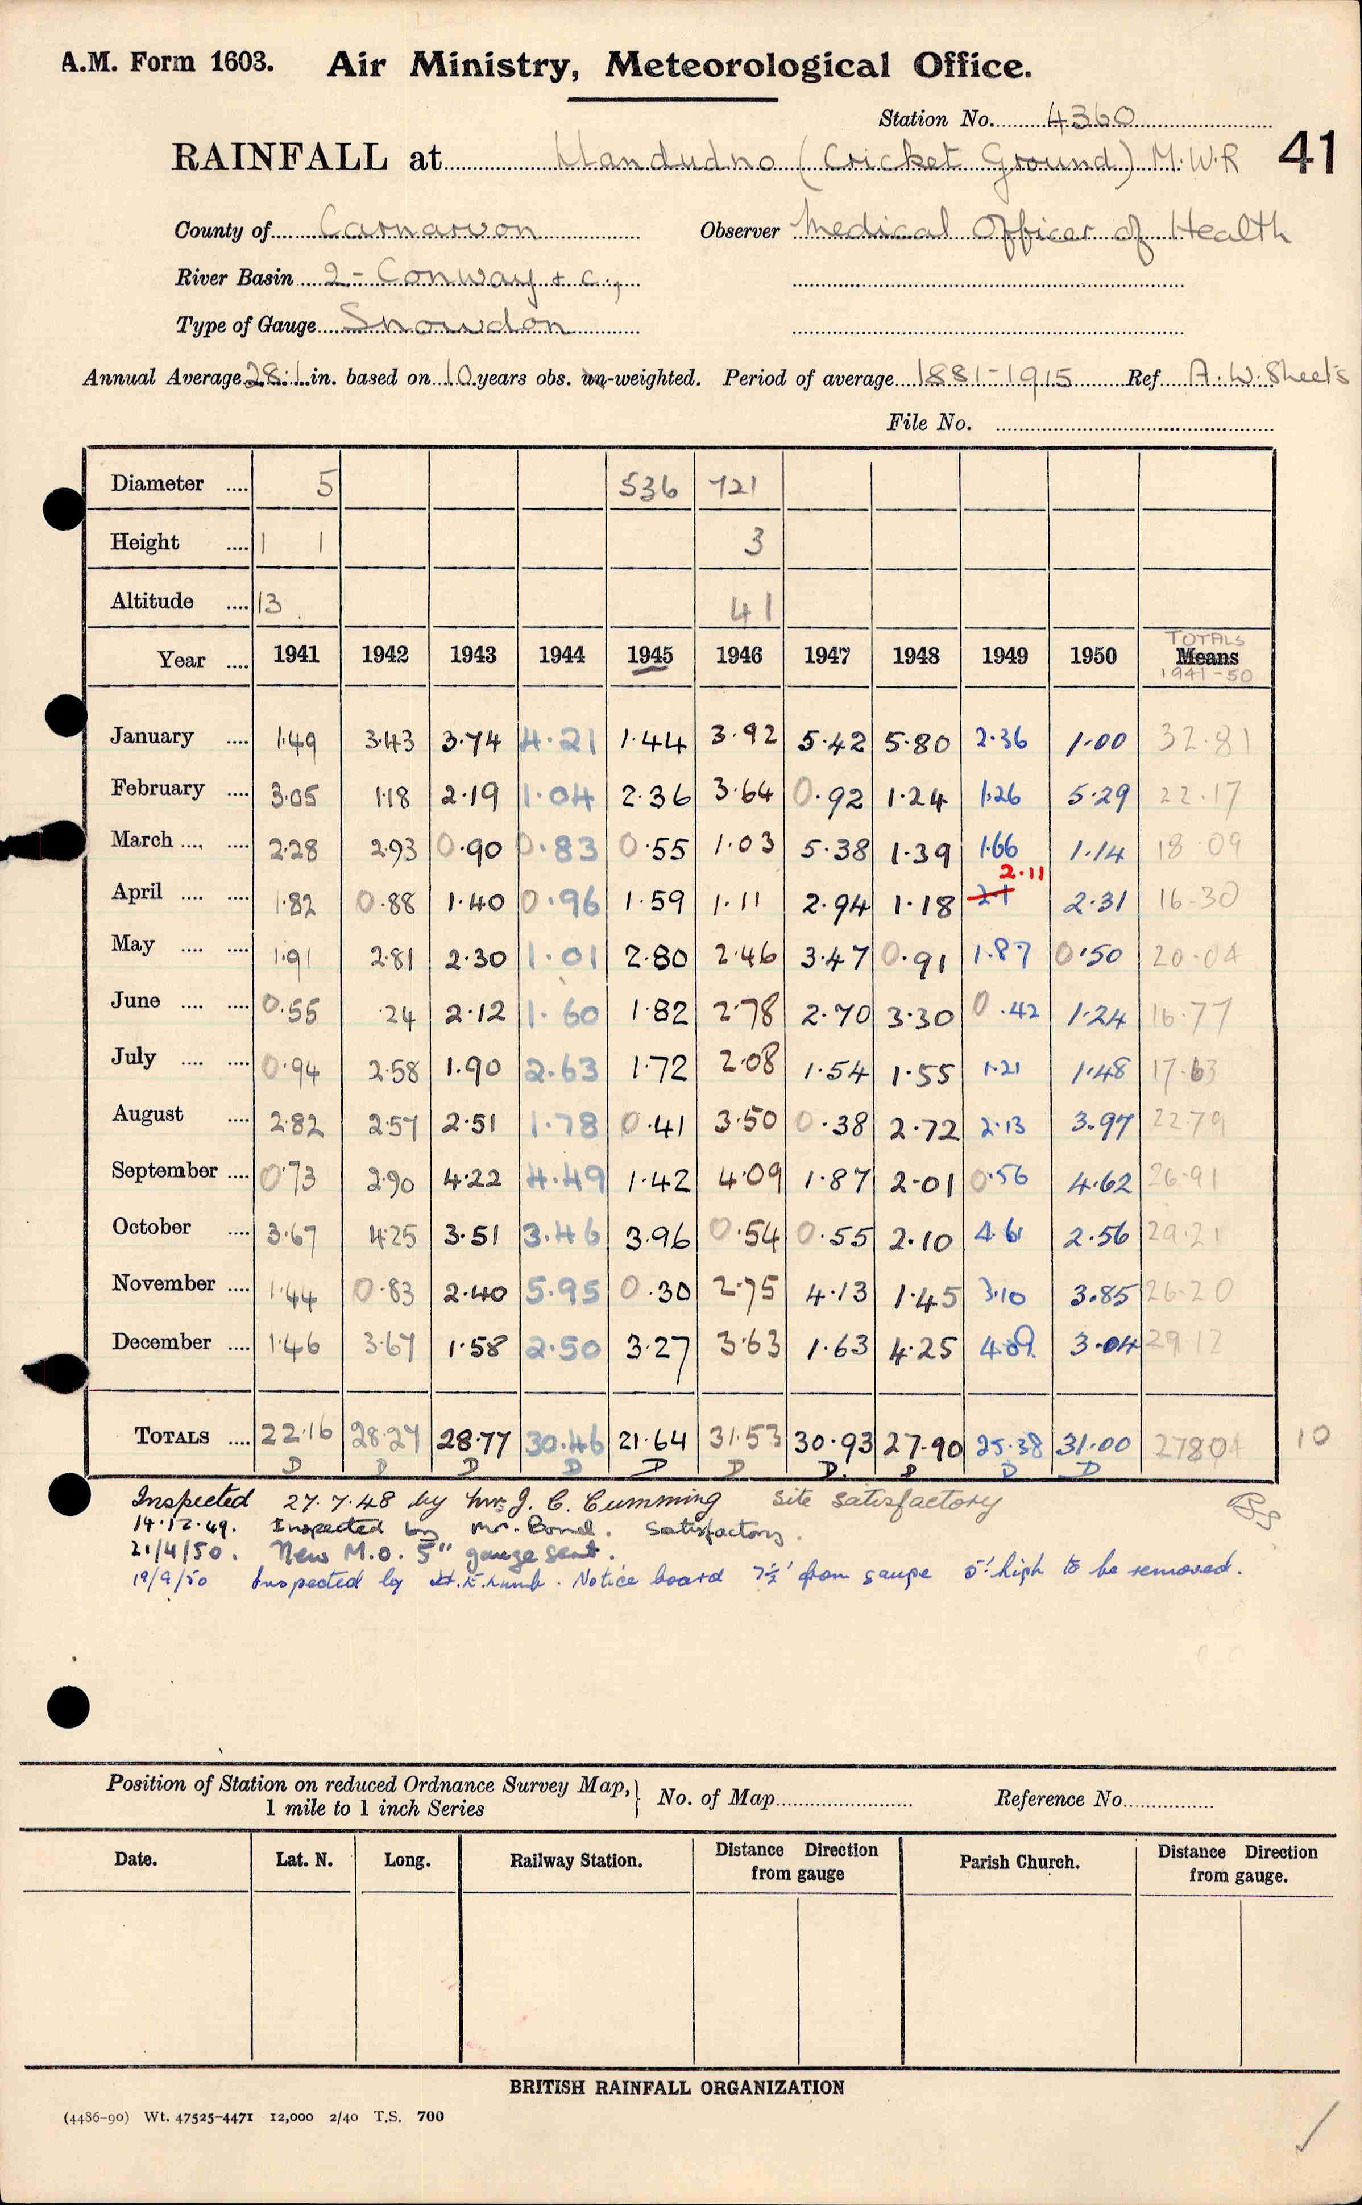 A.M. Form 1603. Air Ministry, Meteorological Office.
Station No. 4360
RAINFALL at Llandudno (Cricket Ground) M.W.R 41
County of Carnarvon Observer Medical Officer of Health
River Basin 2 - Conway & c.,
Type of Gauge Snowdon
Annual Average 28.1 in. based on 10 years obs. un-weighted. Period of average 1881-1915 Ref A.W. Sheets
File No.
Diameter .... 5 536 721
Height .... 1 1 3
Altitude .... 13 41
Year .... 1941 1942 1943 1944 1945 1946 1947 1948 1949 1950 TOTALS Means 1941-50
January .... 1.49 3.43 3.74 4.21 1.44 3.92 5.42 5.80 2.36 1.00 32.81
February .... 3.05 1.18 2.19 1.04 2.36 3.64 0.92 1.24 1.26 5.29 22.17
March .... .... 2.28 2.93 0.90 0.83 0.55 1.03 5.38 1.39 1.66 1.14 18.09
April .... .... 1.82 0.88 1.40 0.96 1.59 1.11 2.94 1.18 2.11 2.31 16.30
May .... .... 1.91 2.81 2.30 1.01 2.80 2.46 3.47 0.91 1.87 0.50 20.04
June .... .... 0.55 .24 2.12 1.60 1.82 2.78 2.70 3.30 0.42 1.24 16.77
July .... .... 0.94 2.58 1.90 2.63 1.72 2.08 1.54 1.55 1.21 1.48 17.63
August .... 2.82 2.57 2.51 1.78 0.41 3.50 0.38 2.72 2.13 3.97 22.79
September .... 0.73 2.90 4.22 4.49 1.42 4.09 1.87 2.01 0.56 4.62 26.91
October .... 3.67 4.25 3.51 3.46 3.96 0.54 0.55 2.10 4.61 2.56 29.21
November .... 1.44 0.83 2.40 5.95 0.30 2.75 4.13 1.45 3.10 3.85 26.20
December .... 1.46 3.67 1.58 2.50 3.27 3.63 1.63 4.25 4.09 3.04 29.12
TOTALS .... 22.16 28.27 28.77 30.46 21.64 31.53 30.93 27.90 25.38 31.00 278.04 10
D D D D D D D. D D D
Inspected 27.7.48 by Mr J. C. Cumming Site satisfactory
14.12.49. Inspected by Mr. Bond. Satisfactory.
21/4/50. New M.O. 5" gauge sent.
19/9/50 Inspected by Notice board 7½' from gauge 5' high to be removed.
Position of Station on reduced Ordnance Survey Map, 1 mile to 1 inch Series No. of Map Reference No.
Date. Lat. N. Long. Railway Station. Distance Direction from gauge Parish Church. Distance Direction from gauge.
BRITISH RAINFALL ORGANIZATION
(4486-90) Wt. 47525-4471 12,000 2/40 T.S. 700